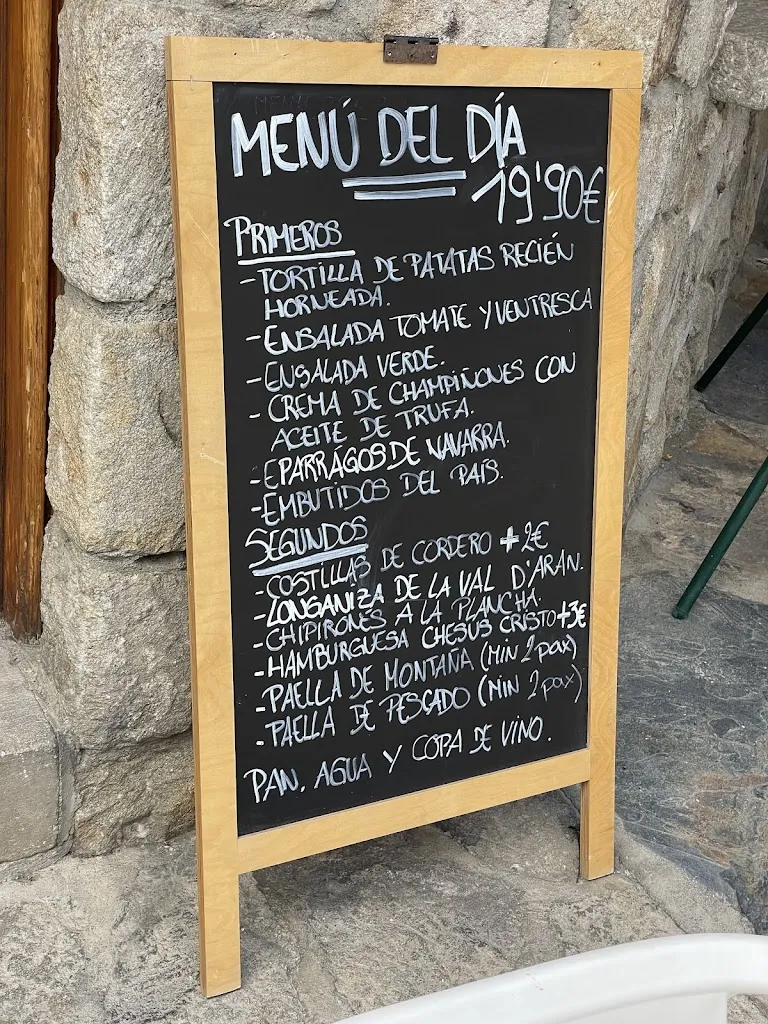 MENÚ DEL DÍA
19'90€
PRIMEROS
-TORTILLA DE PATATAS RECIÉN
HORNEADA.
-ENSALADA TOMATE Y VENTRESCA
-ENSALADA VERDE.
- CREMA DE CHAMPIÑONES CON
ACEITE DE TRUFA.
-EPARRAGOS DE NAVARRA.
-EMBUTIDOS DEL PAÍS.
SEGUNDOS
-COSTILLAS DE CORDERO +2€
-LONGANIZA DE LA VAL D'ARAN.
-CHIPIRONES A LA PLANCHA.
-HAMBURGUESA CHESUS CRISTO+3€
-PAELLA DE MONTAÑA (MIN 2 pax)
-PAELLA DE PESCADO (MIN 2 pax)
PAN, AGUA Y COPA DE VINO.